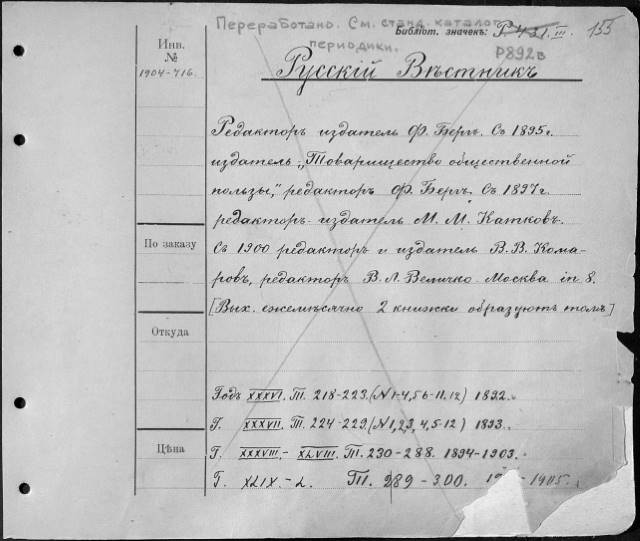 Переработано. См. станд. каталог
периодики.
Библіот. значекъ: Р431.III. 155
Р892в
Инв.
№
1904-716.
Русскій Вѣстникъ
Редакторъ издатель Ф. Бергъ. Съ 1895 г.
издатель „Товарищество общественной
пользы", редакторъ Ф. Бергъ. Съ 1897 г.
редакторъ-издатель М. М. Катковъ.
По заказу
Съ 1900 редакторъ и издатель В. В. Кома-
ровъ, редакторъ В. Л. Величко. Москва in 8.
[Вых. ежемѣсячно 2 книжки образуютъ томъ]
Откуда
Годъ XXXVI. Т. 218-223. (N 1-4, 5 6-11. 12) 1892.
Г. XXXVII. Т. 224-229. (N 1, 2 3, 4, 5-12) 1893.
Цѣна
Г. XXXVIII.- XLVIII. Т. 230-288. 1894-1903.
Г. XLIX.-L. Т. 289-300. 1905.